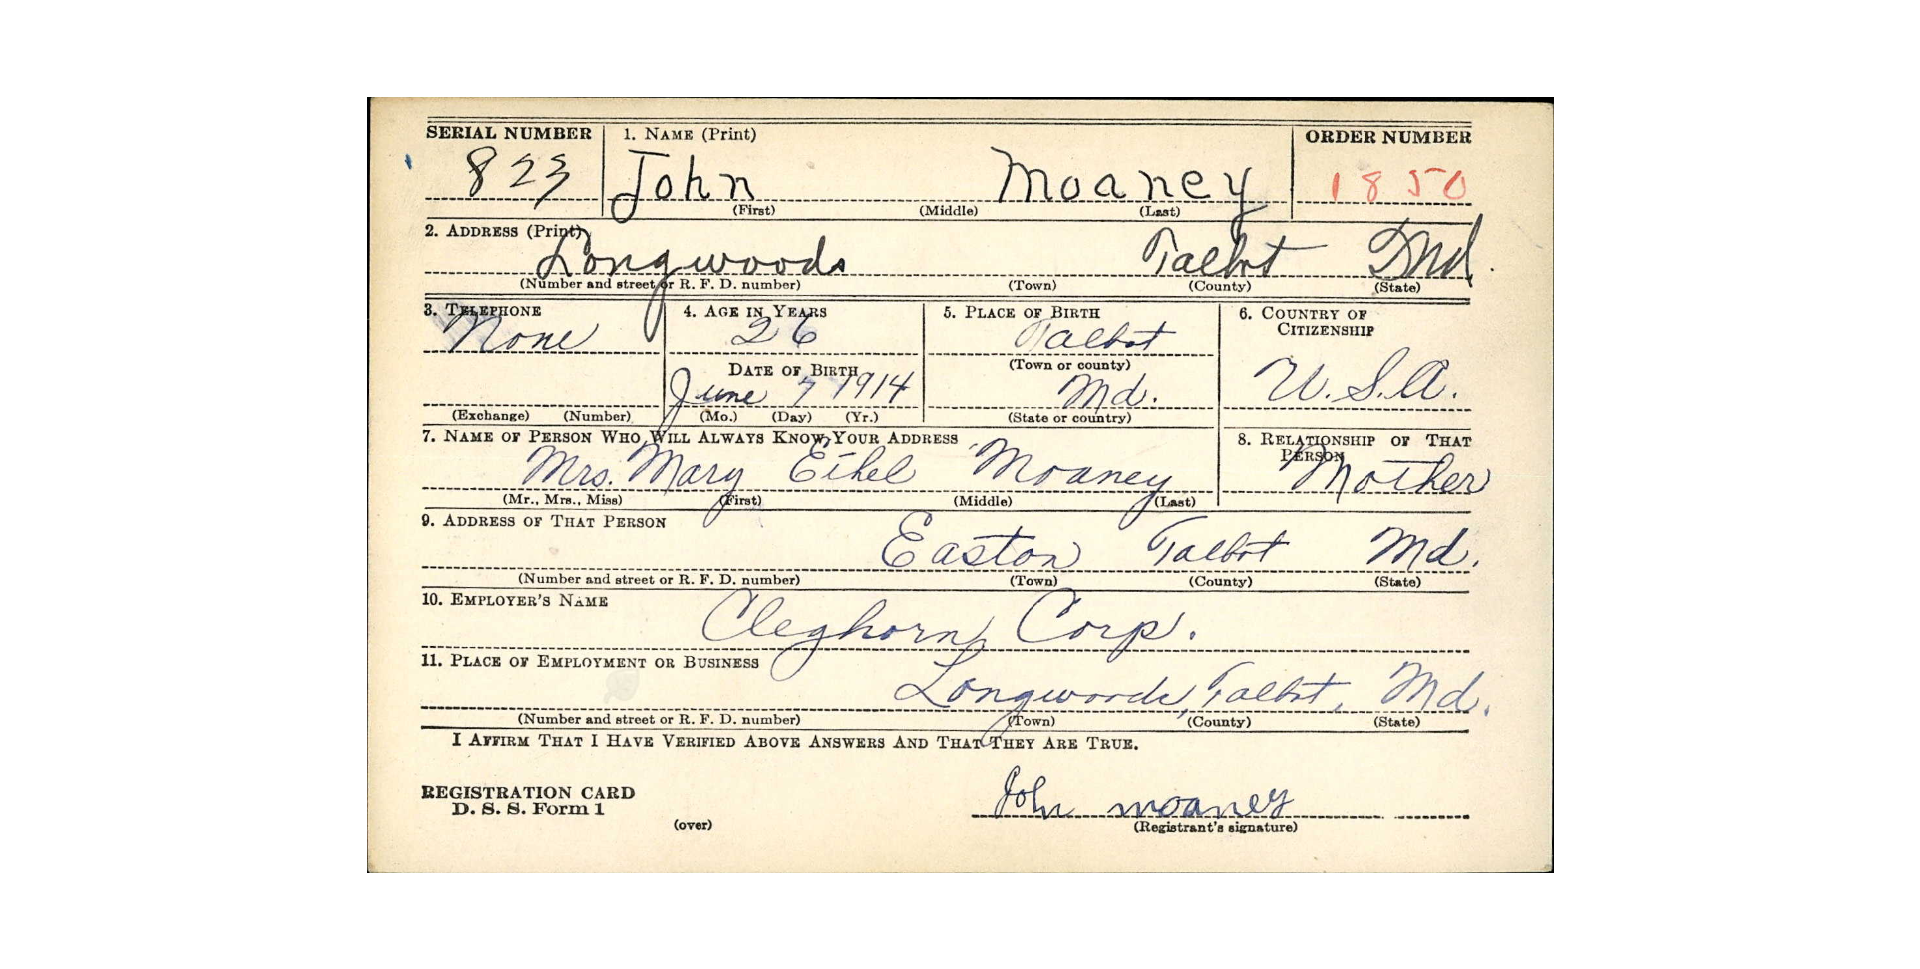 SERIAL NUMBER 1. NAME (Print) ORDER NUMBER
823 John Moaney 1850
(First) (Middle) (Last)
2. ADDRESS (Print)
Longwoods Talbot Md.
(Number and street or R. F. D. number) (Town) (County) (State)
3. TELEPHONE 4. AGE IN YEARS 5. PLACE OF BIRTH 6. COUNTRY OF CITIZENSHIP
None 26 Talbot
(Town or county)
DATE OF BIRTH U.S.A.
June 7 1914 Md.
(Exchange) (Number) (Mo.) (Day) (Yr.) (State or country)
7. NAME OF PERSON WHO WILL ALWAYS KNOW YOUR ADDRESS 8. RELATIONSHIP OF THAT PERSON
Mrs. Mary Ethel Moaney Mother
(Mr., Mrs., Miss) (First) (Middle) (Last)
9. ADDRESS OF THAT PERSON
Easton Talbot Md.
(Number and street or R. F. D. number) (Town) (County) (State)
10. EMPLOYER'S NAME
Cleghorn Corp.
11. PLACE OF EMPLOYMENT OR BUSINESS
Longwoods, Talbot, Md.
(Number and street or R. F. D. number) (Town) (County) (State)
I AFFIRM THAT I HAVE VERIFIED ABOVE ANSWERS AND THAT THEY ARE TRUE.
REGISTRATION CARD
D. S. S. Form 1 John moaney
(over) (Registrant's signature)